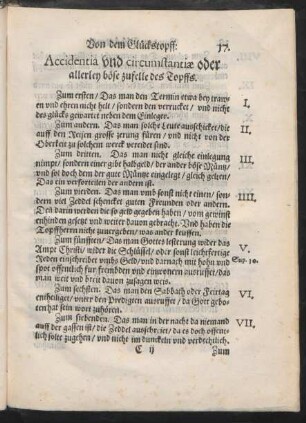 Von dem Glückstopff: 17.
Accidentia vnd circumstantiæ oder
allerley böse zufelle des Topffs.
Zum ersten / Das man den Termin etwa bey
en vnd ehren nicht helt / sondern den verrucket / vnd nicht I.
des glücks gewartet neben dem Einleger.
Zum andern. Das man solche Leute ausschicket / die II.
auff den Reisen grosse zerung füren / vnd nicht von der
Oberkeit zu solchem werck verordent sind.
Zum dritten. Das man nicht gleiche einlegung III.
nimpt / sondern einer gibt halbgeld / der ander böse Müntz /
vnd sol doch denn der gute Müntze eingelegt / gleich gelten /
Das ein verforteilen der andern ist.
Zum vierden. Das man vmb sonst nicht einen / son- IIII.
dern viel Zeddel schencket guten Freunden oder andern.
Den denn werden die so geld gegeben haben / vom gewinst
erhinden gesetzt vnd weiter dauon gebracht. Vnd haben die
Topffherrn nicht zuuergeben / was ander keuffen.
Zum fünfften / Das man Gottes lesterung wider das V.
Ampt Christi / wider die Schlüssel / oder sonst leichtfertige
Reden einschreibet vmbs Geld / vnd darnach mit hohn vnd
spot offentlich für frembden vnd einwonern ausruffet / das
man weit vnd breit dauon zusagen weis.
Zum sechsten. Das man den Sabbath oder Feiertag VI.
entheiliget / vnter den Predigten ausruffet / da Gott gebo-
ten hat sein wort zuhören.
Zum siebenden. Das man in der nacht da niemand VII.
auff der gassen ist / die Zeddel ausschreiet / da es doch offent-
lich solte zugehen / vnd nicht im dunckeln vnd verdechtlich.
C ij Zum